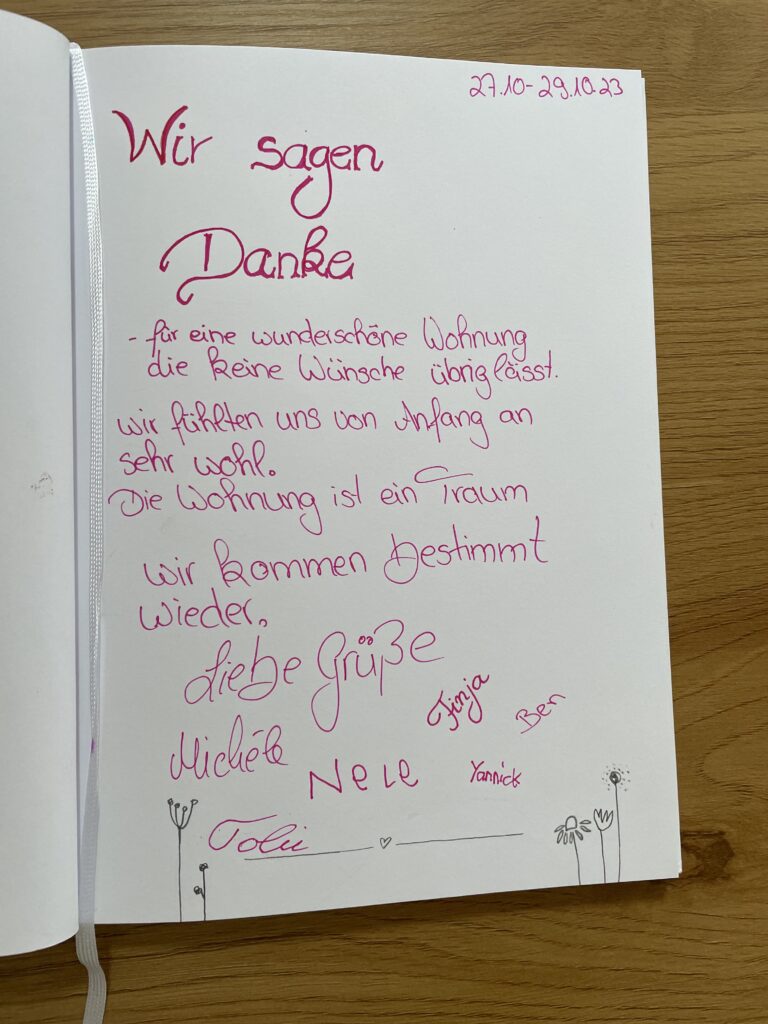 27.10-29.10.23
Wir sagen
Danke
- für eine wunderschöne Wohnung
die keine Wünsche übrig lässt.
wir fühlten uns von Anfang an
sehr wohl.
Die Wohnung ist ein Traum
wir kommen bestimmt
wieder.
Liebe Grüße
Finja
Ben
Michéle
Nele
Yannick